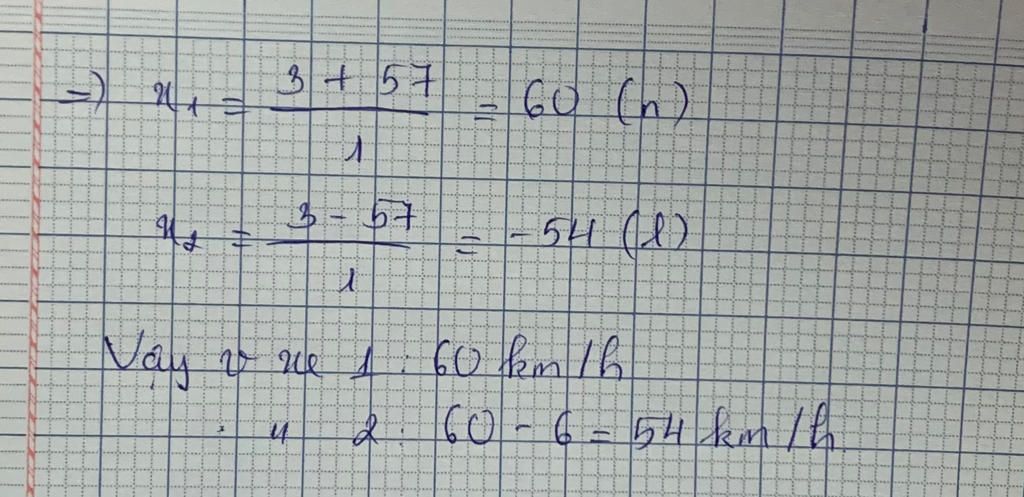 => x₁ = (3 + 57)/1 = 60 (n)
x₂ = (3 - 57)/1 = -54 (l)
Vậy v xe 1 : 60 km/h
. " 2 : 60 - 6 = 54 km/h.